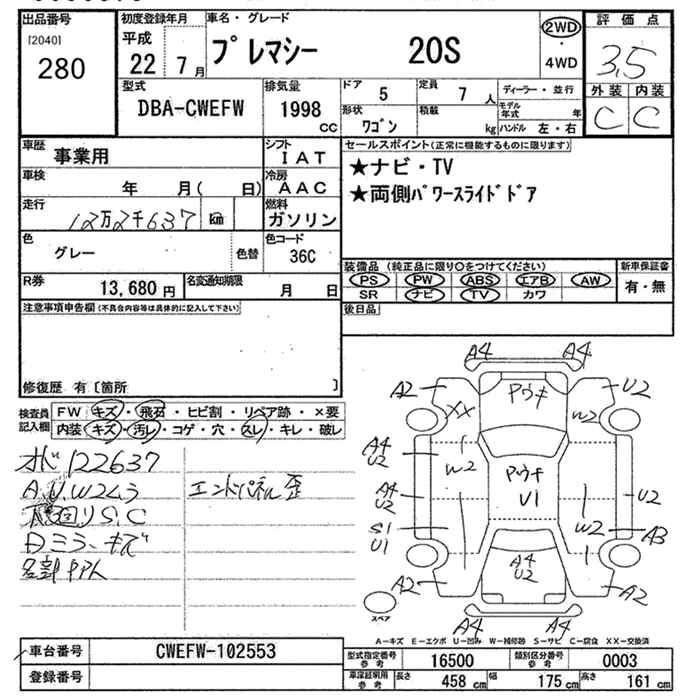 出品番号 初度登録年月 車名・グレード 評価点
[2040] 平成
280 22 7月 プレマシー 20S 2WD・4WD 3.5
外装 内装
C C
型式 排気量 ドア 定員 ディーラー・並行
DBA-CWEFW 1998 cc 5 7人 モデル年式 年
形状 積載
ワゴン kg ハンドル 左・右
車歴 事業用 シフト IAT セールスポイント(正常に機能するものに限ります)
車検 年 月( 日) 冷房 AAC ★ナビ・TV
走行 12万2千637 km 燃料 ガソリン ★両側パワースライドドア
色 グレー 色替 色コード 36C
装備品(純正品に限り○をつけてください) 新車保証書
PS PW ABS エアB AW 有・無
SR ナビ TV カワ
R券 13,680円 名変通知期限 月 日
後日品
注意事項申告欄(不具合内容等は具体的に記入して下さい)
修復歴 有〔箇所 〕
検査員記入欄 FW キズ・飛石・ヒビ割・リペア跡・×要
内装 キズ・汚レ・コゲ・穴・スレ・キレ・破レ
オド122637
A.U.W2くう エンドパネル歪
S.C
Dミラーキズ
A4 A4
A2 アウキ U2
XX W2
A4 U2 W2
アウキ U1
A4 U2 U2
S1 U1 W2 A3
A2 A4 U2 A2
スペア A4 A4
A-キズ E-エクボ U-凹み W-補修跡 S-サビ C-腐食 XX-交換済
車台番号 CWEFW-102553
登録番号
型式指定番号 参考 16500 類別区分番号 参考 0003
車庫証明用 参考 長さ 458 cm 幅 175 cm 高さ 161 cm